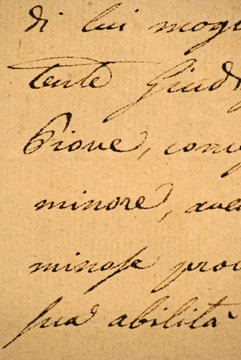 di lui mogl
tente Giud
Piove, conv
minore, ave
minase pro
sua abilità